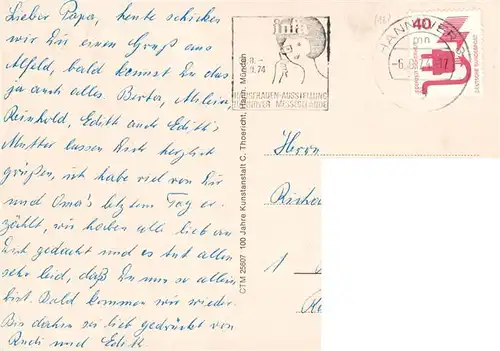 Lieber Papa, heute schicken
wir Du einen Gruß aus
Alfeld, bald kommst Du das
ja auch alles. Berta, Milein,
Reinhold, Edith und Edith's
Mutter lassen Dich herzlich
grüßen, ich habe viel von Dir
und Oma's letztem Tag er-
zählt, wir haben alle lieb an
Dich gedacht und es tut allen
sehr leid, daß Du nun so allein
bist. Bald kommen wir wieder.
Bis dahin sei lieb gedrückt von
Rudi und Edith
CTM 25607 100 Jahre Kunstanstalt C. Thoericht, Hann. Münden
.74
HAUSFRAUEN-AUSSTELLUNG
HANNOVER MESSEGELÄNDE
HANNOVER
40
Herrn
1